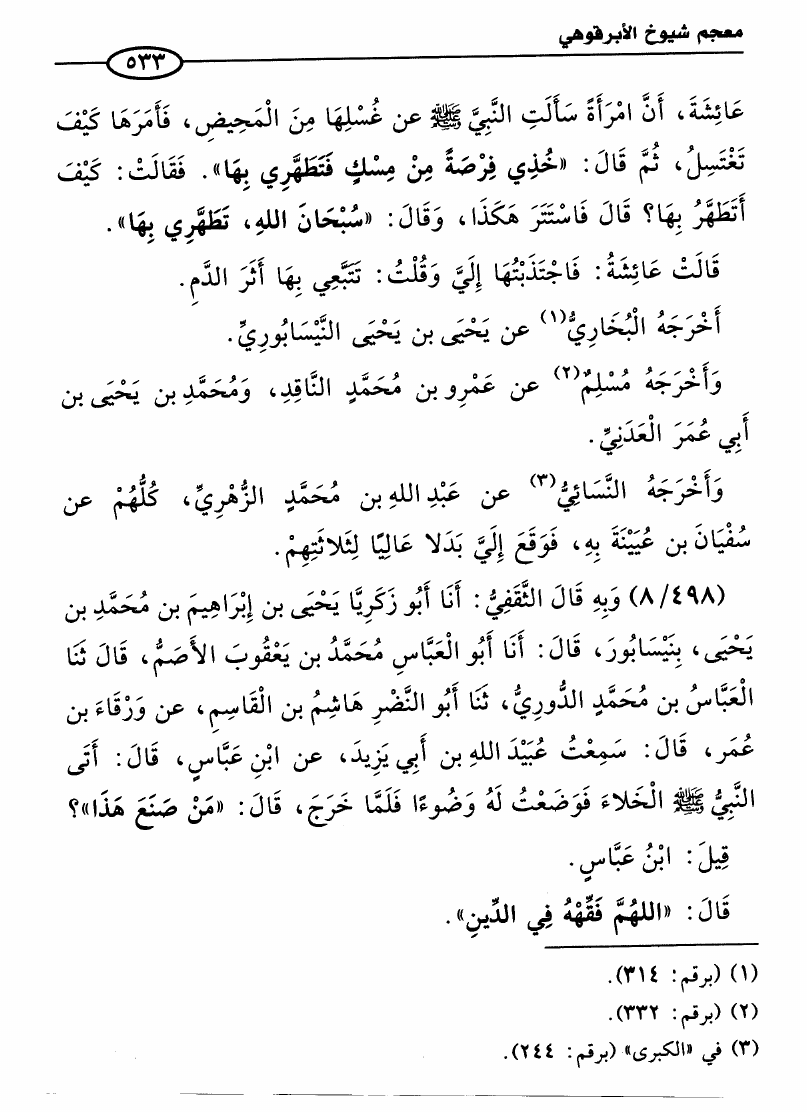 معجم شيوخ الأبرقوهي
٥٣٣
عَائِشَةَ، أَنَّ امْرَأَةً سَأَلَتِ النَّبِيَّ ﷺ عن غُسْلِهَا مِنَ الْمَحِيضِ، فَأَمَرَهَا كَيْفَ
تَغْتَسِلُ، ثُمَّ قَالَ: «خُذِي فِرْصَةً مِنْ مِسْكٍ فَتَطَهَّرِي بِهَا». فَقَالَتْ: كَيْفَ
أَتَطَهَّرُ بِهَا؟ قَالَ فَاسْتَتَرَ هَكَذَا، وَقَالَ: «سُبْحَانَ اللهِ، تَطَهَّرِي بِهَا».
قَالَتْ عَائِشَةُ: فَاجْتَذَبْتُهَا إِلَيَّ وَقُلْتُ: تَتَبَّعِي بِهَا أَثَرَ الدَّمِ.
أَخْرَجَهُ الْبُخَارِيُّ(١) عن يَحْيَى بن يَحْيَى النَّيْسَابُورِيِّ.
وَأَخْرَجَهُ مُسْلِمٌ(٢) عن عَمْرِو بن مُحَمَّدٍ النَّاقِدِ، وَمُحَمَّدِ بن يَحْيَى بن
أَبِي عُمَرَ الْعَدَنِيِّ.
وَأَخْرَجَهُ النَّسَائِيُّ(٣) عن عَبْدِ اللهِ بن مُحَمَّدٍ الزُّهْرِيِّ، كُلُّهُمْ عن
سُفْيَانَ بن عُيَيْنَةَ بِهِ، فَوَقَعَ إِلَيَّ بَدَلا عَالِيًا لِثَلاثَتِهِمْ.
(٨/٤٩٨) وَبِهِ قَالَ الثَّقَفِيُّ: أَنَا أَبُو زَكَرِيَّا يَحْيَى بن إِبْرَاهِيمَ بن مُحَمَّدِ بن
يَحْيَى، بِنَيْسَابُورَ، قَالَ: أَنَا أَبُو الْعَبَّاسِ مُحَمَّدُ بن يَعْقُوبَ الأَصَمُّ، قَالَ ثَنَا
الْعَبَّاسُ بن مُحَمَّدٍ الدُّورِيُّ، ثَنَا أَبُو النَّضْرِ هَاشِمُ بن الْقَاسِمِ، عن وَرْقَاءَ بن
عُمَر، قَالَ: سَمِعْتُ عُبَيْدَ اللهِ بن أَبِي يَزِيدَ، عن ابْنِ عَبَّاسٍ، قَالَ: أَتَى
النَّبِيُّ ﷺ الْخَلاءَ فَوَضَعْتُ لَهُ وَضُوءًا فَلَمَّا خَرَجَ، قَالَ: «مَنْ صَنَعَ هَذَا»؟
قِيلَ: ابْنُ عَبَّاسٍ.
قَالَ: «اللهُمَّ فَقِّهْهُ فِي الدِّينِ».
(١) (برقم: ٣١٤).
(٢) (برقم: ٣٣٢).
(٣) في «الكبرى» (برقم: ٢٤٤).